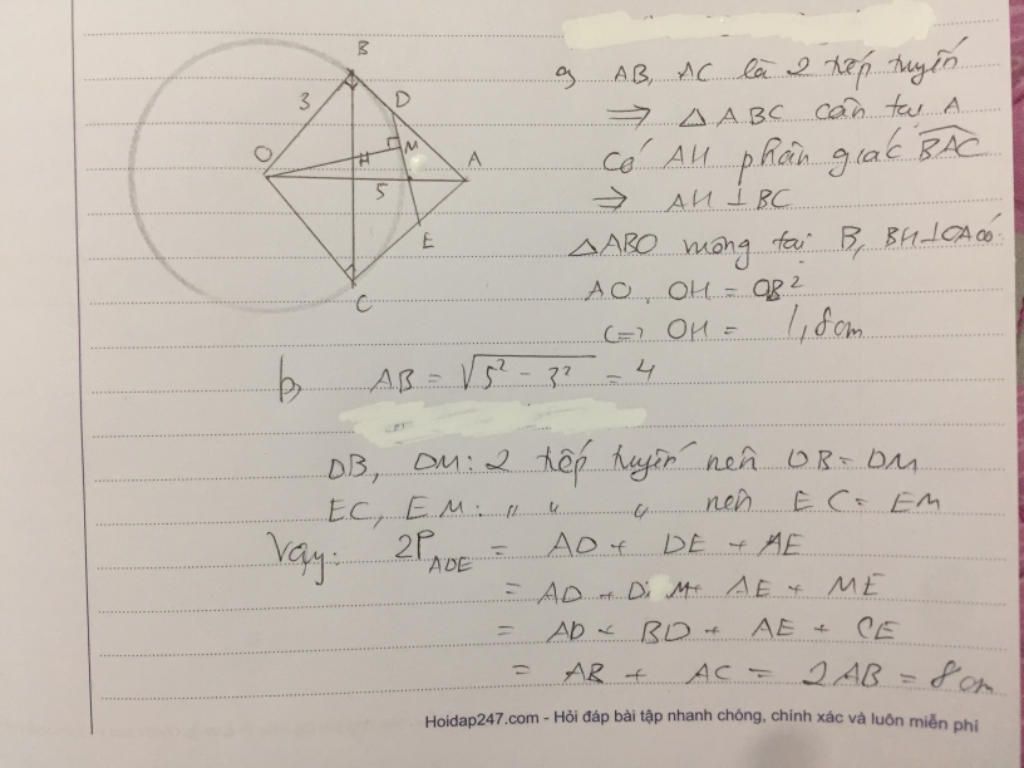 B
3
D
O
H
M
A
5
E
C
a, AB, AC là 2 tiếp tuyến
⇒ △ABC cân tại A
Có AH phân giác BAC
⇒ AH ⊥ BC
△ABO vuông tại B, BH⊥OA có
AO . OH = OB²
<=> OH = 1,8cm
b, AB = √5² - 3² = 4
DB, DM: 2 tiếp tuyến nên DB = DM
EC, EM: " " " nên EC = EM
Vậy: 2P_ADE = AD + DE + AE
= AD + DM + AE + ME
= AD + BD + AE + CE
= AB + AC = 2AB = 8cm
Hoidap247.com - Hỏi đáp bài tập nhanh chóng, chính xác và luôn miễn phí